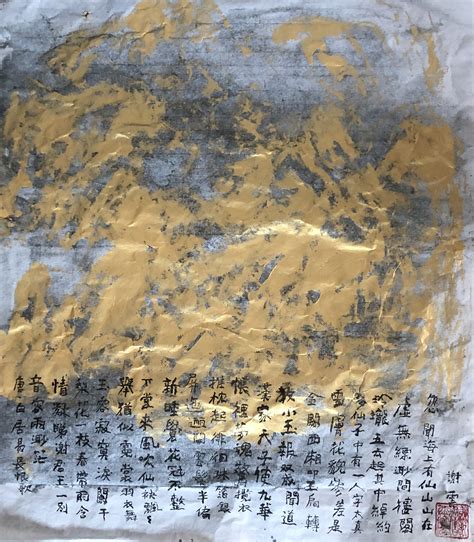 忽聞海上有仙山山在
虛無縹渺間樓閣
玲瓏五云起其中綽約
多仙子中有一人字太真
雪膚花貌參差是
金闕西廂叩玉扃轉
教小玉報双成聞道
漢家天子使九華
帳裡夢魂驚攬衣
推枕起徘徊珠箔銀
屏迤邐開雲鬢半偏
新睡覺花冠不整
下堂來風吹仙袂飄々
舉猶似霓裳羽衣舞
玉容寂寞淚闌干
梨花一枝春帶雨含
情凝睇謝君王一別
音容兩渺茫
唐白居易長恨歌
謝雲